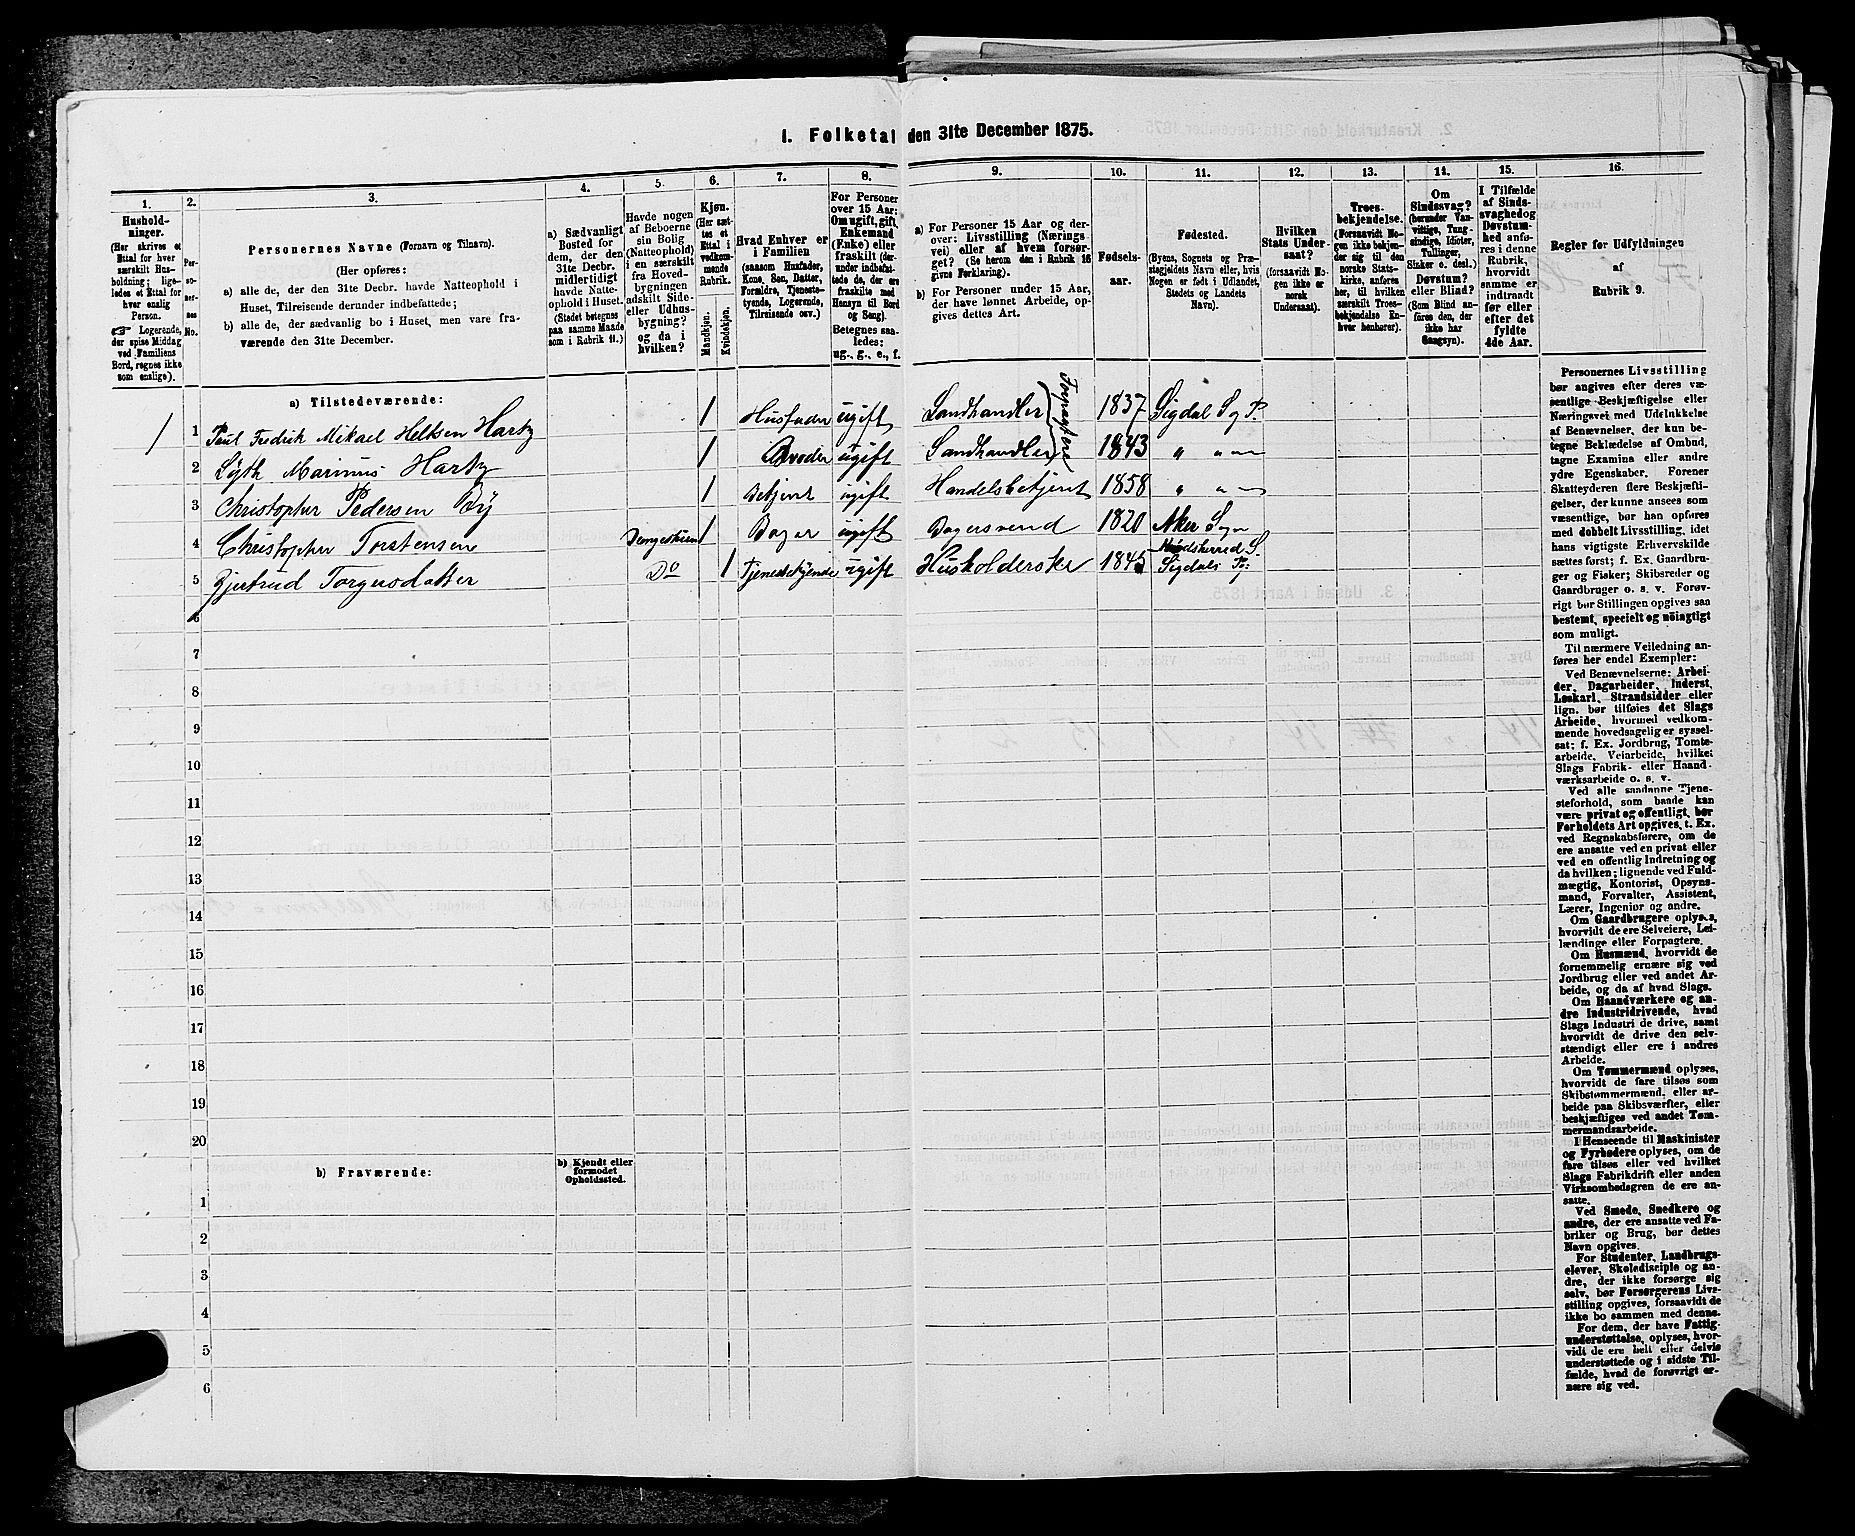 1. Folketal den 31te December 1875.
1.
Hushold-
ninger.
(Her skrives et
Ettal for hver
særskilt Hus-
holdning; lige-
ledes et Ettal for
hver enslig
Person.
☞ Logerende,
der spise Middag
ved Familiens
Bord, regnes ikke
som enslige).
2.
Per-
so-
ner-
nes
No.
3.
Personernes Navne (Fornavn og Tilnavn).
(Her opføres:
a) alle de, der den 31te Decbr. havde Natteophold i
Huset, Tilreisende derunder indbefattede;
b) alle de, der sædvanlig bo i Huset, men vare fra-
værende den 31te December.
4.
a) Sædvanligt
Bosted for
dem, der den
31te Decbr.
midlertidigt
havde Natte-
ophold i Huset.
(Stedet betegnes
paa samme Maade
som i Rubrik 11.)
5.
Havde nogen
af Beboerne
sin Bolig
(Natteophold)
i en særskilt
fra Hoved-
bygningen
adskilt Side-
eller Udhus-
bygning?
og da i
hvilken?
6.
Kjøn.
(Her sæt-
tes et
Ettal i
vedkom-
mende
Rubrik.
Mandkjøn.
Kvindekjøn.
7.
Hvad Enhver er
i Familien
(saasom Husfader,
Kone, Søn, Datter,
Forældre, Tjeneste-
tyende, Logerende,
Tilreisende osv.)
8.
For Personer
over 15 Aar:
Om ugift, gift,
Enkemand
(Enke) eller
fraskilt (der-
under indbefat-
tede de, der ere
fraskilte med
Hensyn til Bord
og Seng).
Betegnes saa-
ledes:
ug., g., e., f.
9.
a) For Personer 15 Aar og der-
over: Livsstilling (Nærings-
vei) eller af hvem forsør-
get? (Se herom den i Rubrik 16
givne Forklaring).
b) For Personer under 15 Aar,
der have lønnet Arbeide, op-
gives dettes Art.
10.
Fødsels-
aar.
11.
Fødested.
(Byens, Sognets og Præ-
stegjeldets Navn eller, hvis
Nogen er født i Udlandet,
Stedets og Landets
Navn).
12.
Hvilken
Stats Under-
saat?
(forsaavidt No-
gen ikke er
norsk
Undersaat).
13.
Troes-
bekjendelse.
(Forsaavidt No-
gen ikke bekjen-
der sig til den
norske Stats-
kirke, anføres
her, til hvilken
særskilt Troes-
bekjendelse En-
hver henhører).
14.
Om
Sindssvag?
(herunder Van-
vittige, Tung-
sindige, Idioter,
Tullinger,
Sinker o. desl.)
Døvstum?
eller Blind?
(Som Blind an-
føres den, der
ikke har
Gangsyn).
15.
I Tilfælde
af Sinds-
svaghed og
Døvstum-
hed anfø-
res i denne
Rubrik,
hvorvidt
samme er
indtraadt
før eller
efter det
fyldte
4de Aar.
16.
Regler for Udfyldningen
af
Rubrik 9.
a) Tilstedeværende:
1 1 Paul Fredrik Mikael Heltsen Hartz 1 Husfader ugift Landhandler Forpagtere 1837 Sigdal S og P.
2 Lyth Marinus Hartz 1 Broder ugift Landhandler 1843 " " "
3 Christopher Pedersen By 1 Betjent ugift Handelsbetjent 1858 " " "
4 Christopher Torstensen 1 Bager ugift Bagersvend 1820 Aker Sogn
5 Gjertrud Torgersdatter Do 1 Tjenestetyende ugift Husholderske 1845 S. Sigdals Pg
6
7
8
9
10
11
12
13
14
15
16
17
18
19
20
b) Fraværende:
b) Kjendt eller
formodet
Opholdssted.
1
2
3
4
5
6
Personernes Livsstilling
bør angives efter deres væ-
sentlige Beskjæftigelse eller
Næringsvei med Udelukkelse
af Benævnelser, der kun be-
tegne Beklædelse af Ombud,
tagne Examina eller andre
ydre Egenskaber. Forener
Skatteyderen flere Beskjæfti-
gelser, der kunne ansees som
væsentlige, bør han opføres
med dobbelt Livsstilling, idet
hans vigtigste Erhvervskilde
sættes først; f. Ex. Gaardbru-
ger og Fisker; Skibsreder og
Gaardbruger o. s. v. Forøv-
rigt bør Stillingen opgives saa
bestemt, specielt og nöiagtigt
som muligt.
Til nærmere Veiledning an-
føres her endel Exempler:
Ved Benævnelserne: Arbei-
der, Dagarbeider, Inderst,
Løskarl, Strandsidder eller
lign. bør tilføies det Slags
Arbeide, hvormed vedkom-
mende hovedsagelig er syssel-
sat; f. Ex. Jordbrug, Tomte-
arbeide, Veiarbeide, hvilket
Slags Fabrik- eller Haand-
værksarbeide o. s. v.
Ved alle saadanne Tjene-
steforhold, som baade kan
være privat og offentligt, bør
Forholdets Art opgives, t. Ex.
ved Regnskabsførere, om de
ere ansatte ved en privat eller
ved en offentlig Indretning og
da hvilken; lignende ved Fuld-
mægtig, Kontorist, Opsyns-
mand, Forvalter, Assistent,
Lærer, Ingeniør og andre.
Om Gaardbrugere oplyses,
hvorvidt de ere Selveiere, Lei-
lændinge eller Forpagtere.
Om Husmænd, hvorvidt de
fornemmelig ernære sig ved
Jordbrug eller ved andet Ar-
beide, og da af hvad Slags.
Om Haandværkere og an-
dre Industridrivende, hvad
Slags Industri de drive, samt
hvorvidt de drive den selv-
stændigt eller ere i andres
Arbeide.
Om Tømmermænd oplyses,
hvorvidt de fare tilsøs som
Skibstømmermænd, eller ar-
beide paa Skibsværfter, eller
beskjæftiges ved andet Tøm-
mermandsarbeide.
I Henseende til Maskinister
og Fyrbødere oplyses, om de
fare tilsøs eller ved hvilket
Slags Fabrikdrift eller anden
Virksombedsgren de ere an-
satte.
Ved Smede, Snedkere og
andre, der ere ansatte ved Fa-
briker og Brug, bør dettes
Navn opgives.
For Studenter, Landbrugs-
elever, Skoledisciple og an-
dre, der ikke forsørge sig
selv, bør Forsørgerens Livs-
stilling opgives, forsaavidt de
ikke bo sammen med denne.
For dem, der have Fattig-
understøttelse, oplyses, hvor-
vidt de ere helt eller delvis
understøttede og i sidste Til-
fælde, hvad de forøvrigt er-
nære sig ved.